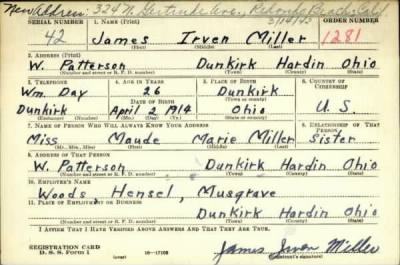 New Address. 324 N. Gertruda Ave., Redondo Beach, Calif
3/14/42
SERIAL NUMBER 1. NAME (Print) ORDER NUMBER
42 James Irven Miller 1281
(First) (Middle) (Last)
2. ADDRESS (Print)
W. Patterson Dunkirk Hardin Ohio
(Number and street or R. F. D. number) (Town) (County) (State)
3. TELEPHONE 4. AGE IN YEARS 5. PLACE OF BIRTH 6. COUNTRY OF CITIZENSHIP
Wm. Day 26 Dunkirk
DATE OF BIRTH (Town or county)
Dunkirk April 2, 1914 Ohio U. S.
(Exchange) (Number) (Mo.) (Day) (Yr.) (State or country)
7. NAME OF PERSON WHO WILL ALWAYS KNOW YOUR ADDRESS 8. RELATIONSHIP OF THAT PERSON
Miss Maude Marie Miller Sister
(Mr., Mrs., Miss) (First) (Middle) (Last)
9. ADDRESS OF THAT PERSON
W. Patterson Dunkirk Hardin Ohio
(Number and street or R. F. D. number) (Town) (County) (State)
10. EMPLOYER'S NAME
Woods, Hensel, Musgrave
11. PLACE OF EMPLOYMENT OR BUSINESS
Dunkirk Hardin Ohio
(Number and street or R. F. D. number) (Town) (County) (State)
I AFFIRM THAT I HAVE VERIFIED ABOVE ANSWERS AND THAT THEY ARE TRUE.
REGISTRATION CARD
D. S. S. Form 1 (over) 16-17105 James Irven Miller
(Registrant's signature)